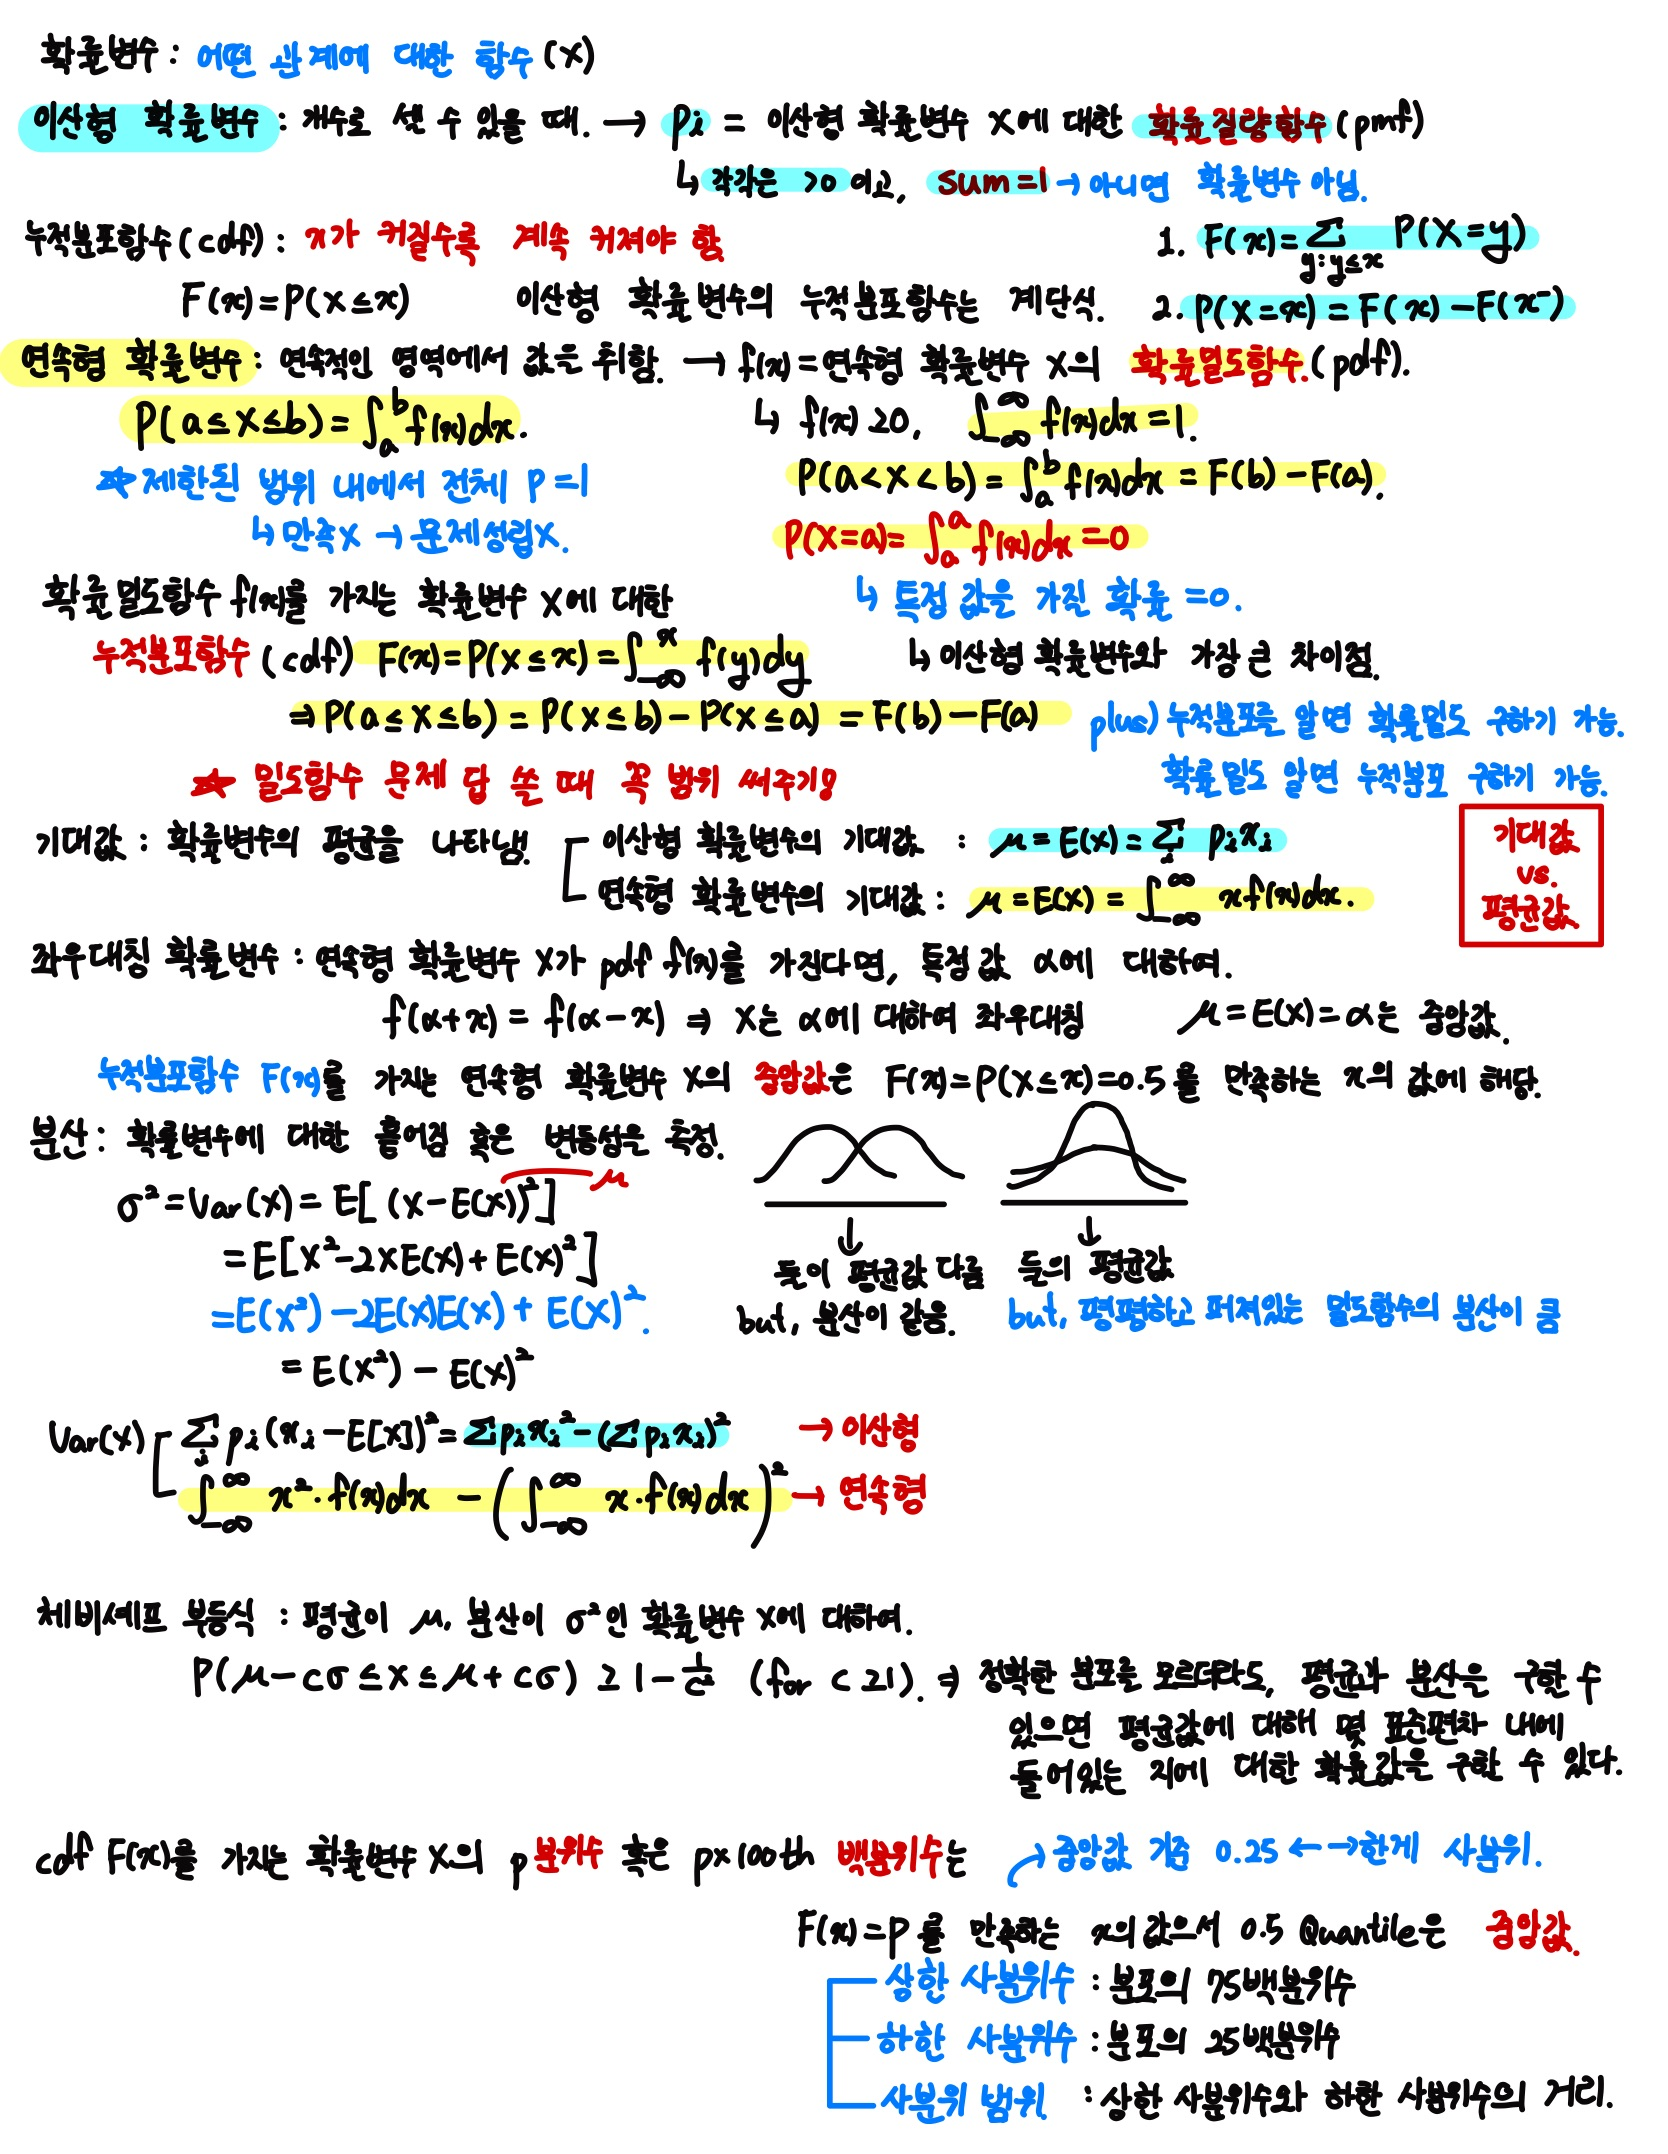 확률변수 : 어떤 관계에 대한 함수 (X)
이산형 확률변수 : 개수로 셀 수 있을 때. → Pi = 이산형 확률변수 X에 대한 확률질량함수 (pmf)
↳ 각각은 >0 이고, sum=1 → 아니면 확률변수 아님.
누적분포함수 (cdf) : x가 커질수록 계속 커져야 함
1. F(x) = Σ P(X=y)
y:y≤x
F(x) = P(X≤x) 이산형 확률변수의 누적분포함수는 계단식. 2. P(X=x) = F(x) - F(x⁻)
연속형 확률변수 : 연속적인 영역에서 값을 취함. → f(x) = 연속형 확률변수 X의 확률밀도함수. (pdf).
P(a≤X≤b) = ∫_a^b f(x)dx. ↳ f(x) ≥0, ∫_{-∞}^{∞} f(x)dx = 1.
☆ 제한된 범위 내에서 전체 P=1 P(a<X<b) = ∫_a^b f(x)dx = F(b) - F(a).
↳ 만족X → 문제성립X. P(X=a) = ∫_a^a f(x)dx = 0
확률밀도함수 f(x)를 가지는 확률변수 X에 대한 ↳ 특정 값을 가질 확률 = 0.
누적분포함수 (cdf) F(x) = P(X≤x) = ∫_{-∞}^x f(y)dy ↳ 이산형 확률변수와 가장 큰 차이점.
⇒ P(a≤X≤b) = P(X≤b) - P(X≤a) = F(b) - F(a) plus) 누적분포를 알면 확률밀도 구하기 가능.
☆ 밀도함수 문제 답 쓸 때 꼭 범위 써주기! 확률밀도 알면 누적분포 구하기 가능.
기대값 : 확률변수의 평균을 나타냄. 이산형 확률변수의 기대값 : μ = E(X) = Σ_i pi xi
연속형 확률변수의 기대값 : μ = E(X) = ∫_{-∞}^{∞} xf(x)dx.
기대값
vs.
평균값
좌우대칭 확률변수 : 연속형 확률변수 X가 pdf f(x)를 가진다면, 특정 값 α에 대하여.
f(α+x) = f(α-x) ⇒ X는 α에 대하여 좌우대칭 μ = E(X) = α는 중앙값.
누적분포함수 F(x)를 가지는 연속형 확률변수 X의 중앙값은 F(x) = P(X≤x) = 0.5 를 만족하는 x의 값에 해당.
분산 : 확률변수에 대한 흩어짐 혹은 변동성을 측정.
μ
σ² = Var(X) = E[ (X-E(X))² ]
= E[ X² - 2XE(X) + E(X)² ]
= E(X²) - 2E(X)E(X) + E(X)².
= E(X²) - E(X)²
둘이 평균값 다름
but, 분산이 같음.
둘의 평균값
but, 평평하고 퍼져있는 밀도함수의 분산이 큼
Var(X) Σ_i pi (xi - E[X])² = Σ pi xi² - (Σ pi xi)² → 이산형
∫_{-∞}^{∞} x²·f(x)dx - (∫_{-∞}^{∞} x·f(x)dx)² → 연속형
체비셰프 부등식 : 평균이 μ, 분산이 σ²인 확률변수 X에 대하여.
P(μ-cσ ≤ X ≤ μ+cσ) ≥ 1 - 1/c² (for c ≥1). ⇒ 정확한 분포를 모르더라도, 평균과 분산을 구할 수
있으면 평균값에 대해 몇 표준편차 내에
들어있는 지에 대한 확률값을 구할 수 있다.
cdf F(x)를 가지는 확률변수 X의 p분위수 혹은 p×100th 백분위수는 → 중앙값 기준 0.25 ← → 한게 사분위.
F(x) = P 를 만족하는 x의 값으서 0.5 Quantile은 중앙값.
상한 사분위수 : 분포의 75백분위수
하한 사분위수 : 분포의 25백분위수
사분위 범위 : 상한 사분위수와 하한 사분위수의 거리.